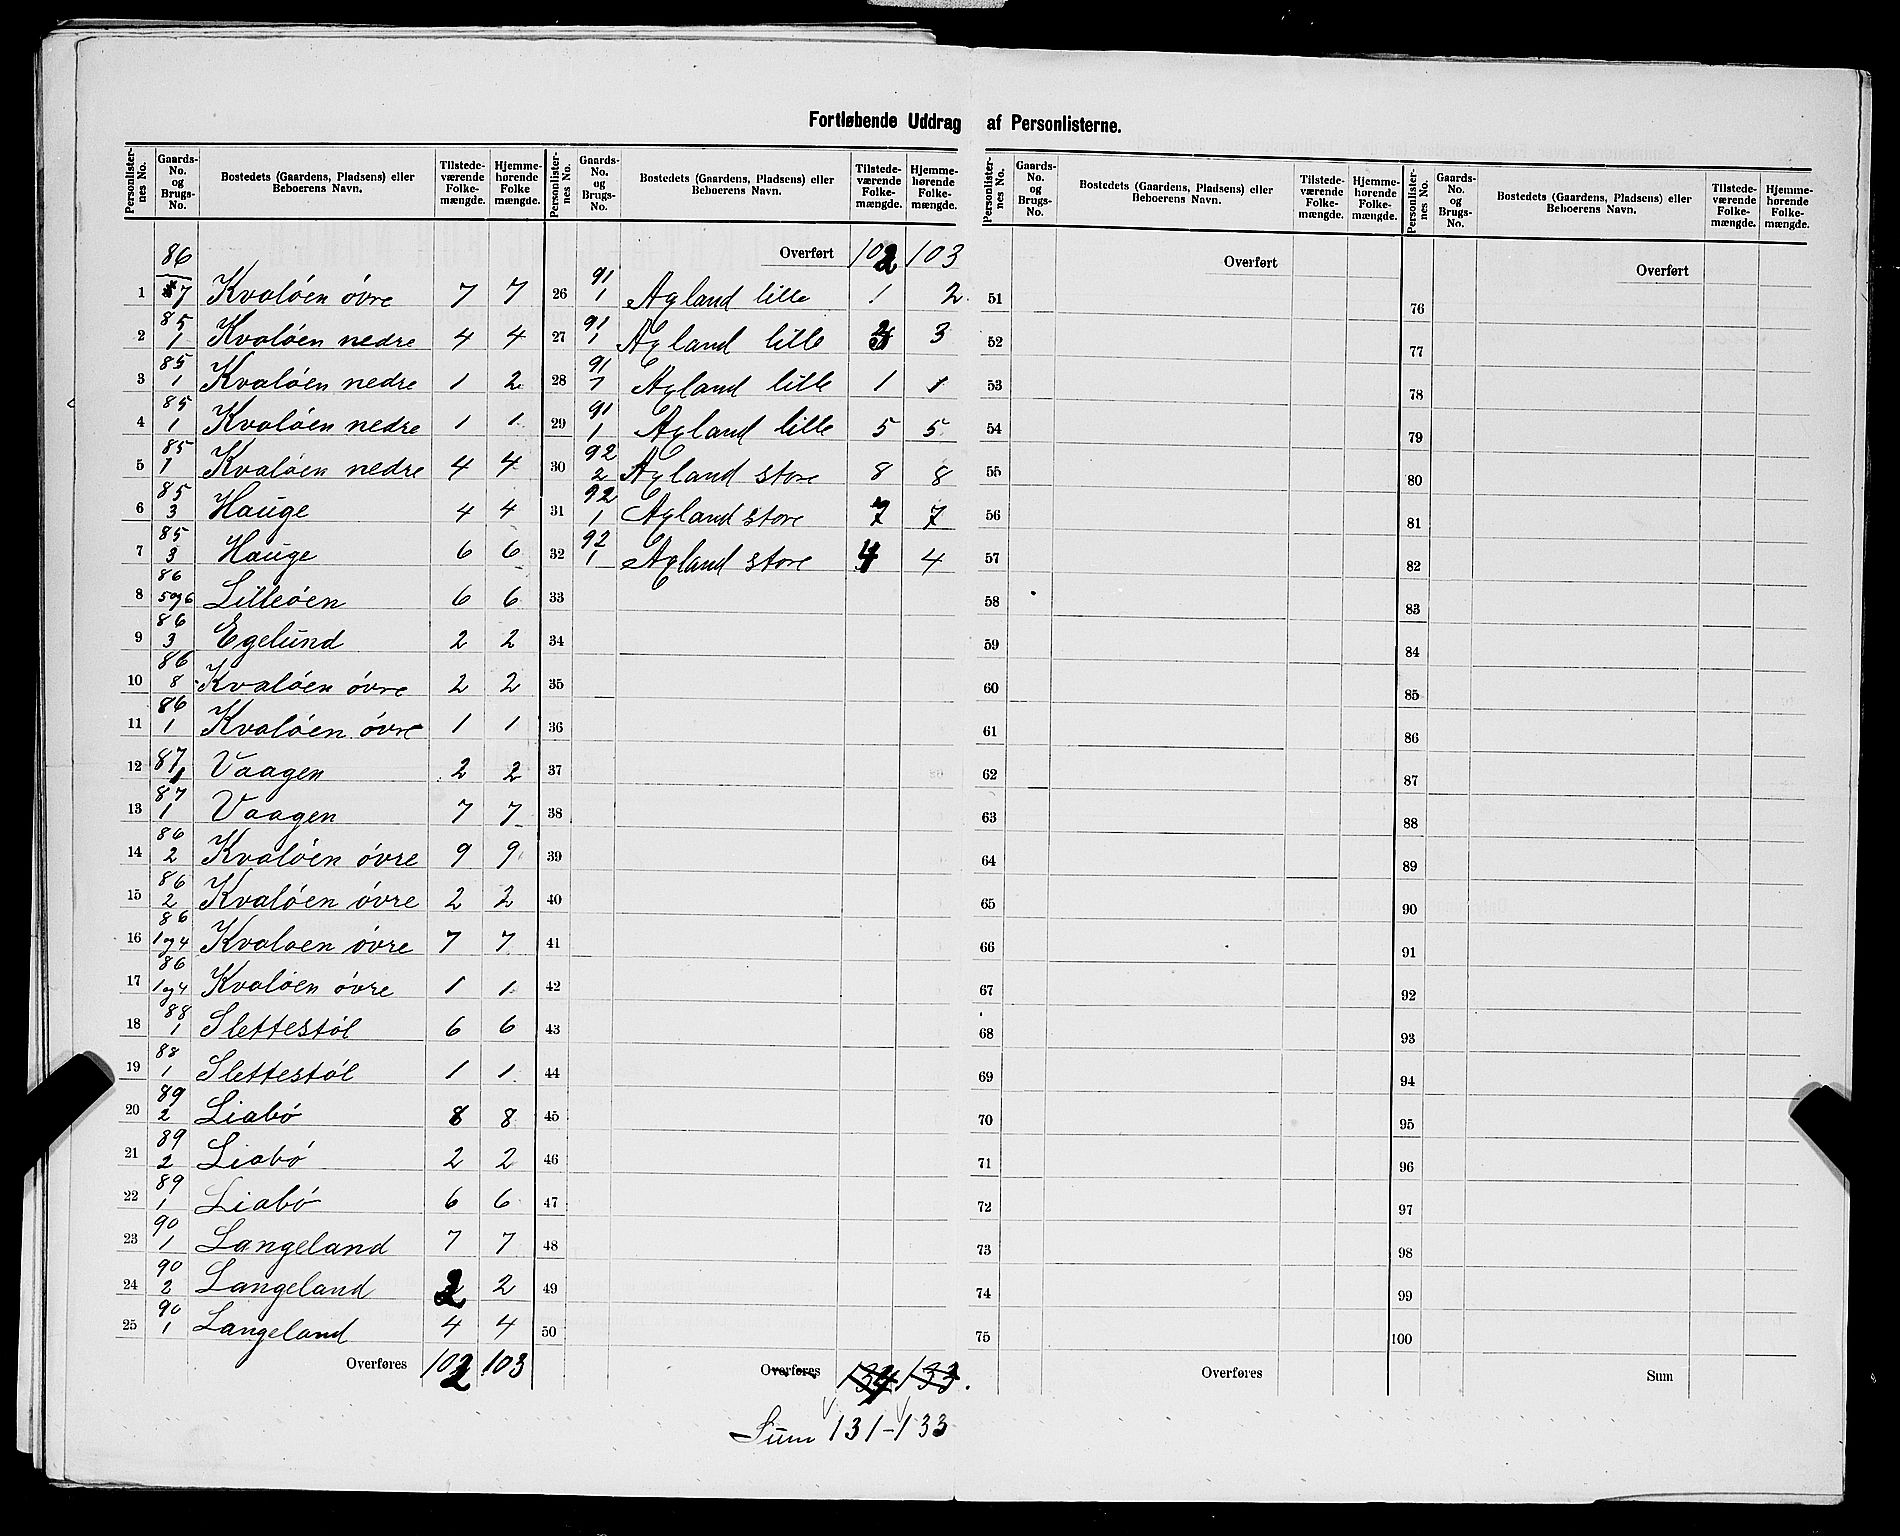 Fortløbende Uddrag af Personlisterne.
Personlister-nes No. Gaards-No. og Brugs-No. Bostedets (Gaardens, Pladsens) eller Beboerens Navn. Tilstede-værende Folke-mængde. Hjemme-hørende Folke mængde. Personlister-nes No. Gaards-No. og Brugs-No. Bostedets (Gaardens, Pladsens) eller Beboerens Navn. Tilstede-værende Folke-mængde. Hjemme-hørende Folke-mængde.
1 86 7 Kvaløen øvre 7 7
2 85 1 Kvaløen nedre 4 4
3 85 1 Kvaløen nedre 1 2
4 85 1 Kvaløen nedre 1 1
5 85 1 Kvaløen nedre 4 4
6 85 3 Hauge 4 4
7 85 3 Hauge 6 6
8 86 5 og 6 Lilleøen 6 6
9 86 3 Egelund 2 2
10 86 8 Kvaløen øvre 2 2
11 86 1 Kvaløen øvre 1 1
12 87 1 Vaagen 2 2
13 87 1 Vaagen 7 7
14 86 2 Kvaløen øvre 9 9
15 86 2 Kvaløen øvre 2 2
16 86 1 og 4 Kvaloen øvre 7 7
17 86 1 og 4 Kvaløen øvre 1 1
18 88 1 Slettestøl 6 6
19 88 1 Slettestøl 1 1
20 89 2 Liabø 8 8
21 89 2 Liabø 2 2
22 89 1 Liabø 6 6
23 90 1 Langeland 7 7
24 90 2 Langeland 2 2
25 90 1 Langeland 4 4
Overføres 102 103
Overført 102 103
26 91 1 Agland lille 1 2
27 91 1 Agland lille 3
28 91 7 Agland lille 1 1
29 91 1 Agland lille 5 5
30 92 2 Agland store 8 8
31 92 1 Agland store 7 7
32 92 1 Agland store 4 4
33
34
35
36
37
38
39
40
41
42
43
44
45
46
47
48
49
50
Overføres 133
Sum 131 - 133
Personlister-nes No. Gaards-No. og Brugs-No. Bostedets (Gaardens, Pladsens) eller Beboerens Navn. Tilstede-værende Folke-mængde. Hjemme-hørende Folke-mængde. Personlister-nes No. Gaards-No. og Brugs-No. Bostedets (Gaardens, Pladsens) eller Beboerens Navn. Tilstede-værende Folke-mængde. Hjemme-hørende Folke-mængde.
Overført
51
52
53
54
55
56
57
58
59
60
61
62
63
64
65
66
67
68
69
70
71
72
73
74
75
Overføres
Overført
76
77
78
79
80
81
82
83
84
85
86
87
88
89
90
91
92
93
94
95
96
97
98
99
100
Sum